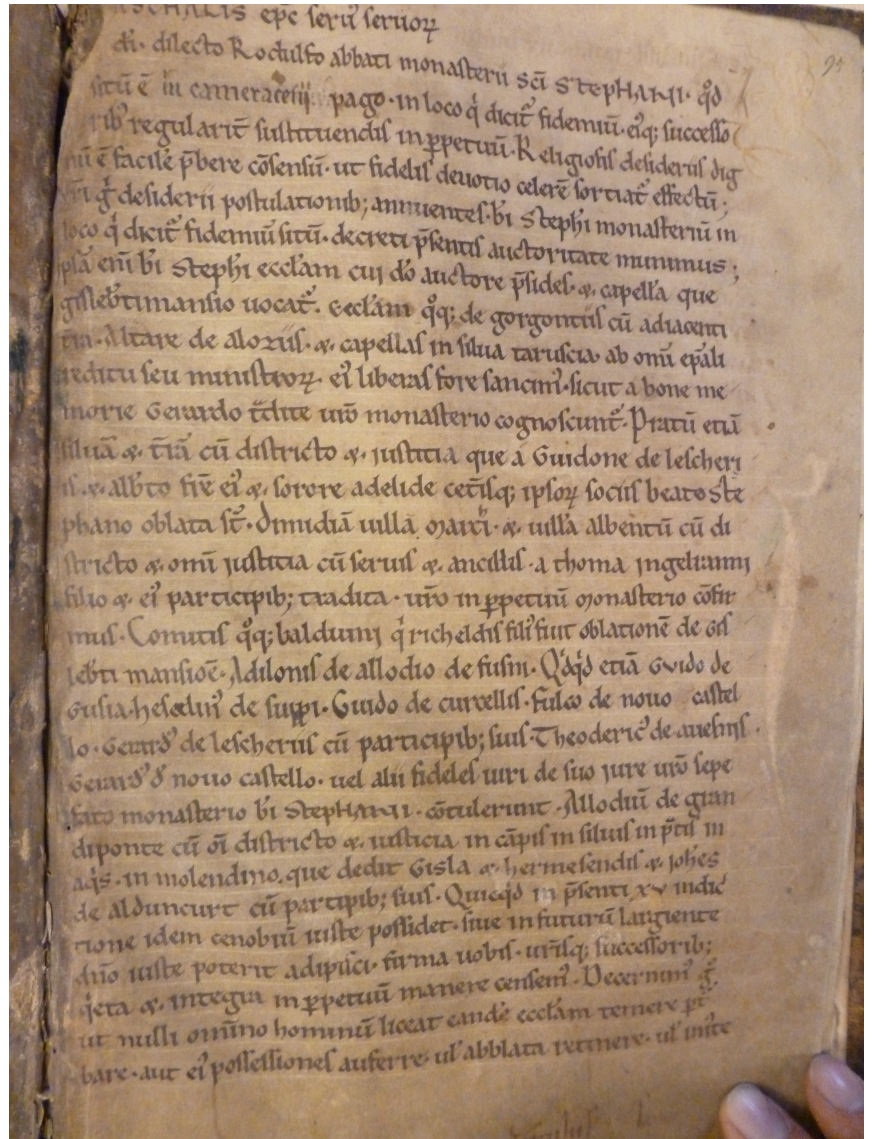 SCHALIS epc serv servoꝝ
di · dilecto Rodulfo abbati monasterii sci StepHANI · qd
situ ē in cameracensi pago · in loco q̇ dicit̄ fidemiū · eiq; successo
rib' regularit̄ sustituendis in ꝑpetuū · Religiosis desideriis dig
nū ē facile p̄bere cōsensū · ut fidelis deuotio celerē sortiat̄ effectū ;
vr̄i g̊ desiderii postulationib; annuentes · bi Stephi monasteriū in
loco q̇ dicit̄ fidemiū sitū · decreti p̄sentis auctoritate munimus ;
ipsā eni bi Stephi eccl̄am cui dō auctore p̄sides · & · capella que
gislebti mansio uocat̄ · eccl̄am qq; de gorgontiis cū adiacenti
t̄ra · Altare de aloziis · & · capellas in silua taruscia · ab omi ep̄ali
redditu seu ministroꝝ ei' liberas fore sancim' · sicut a bone me
morie Gerardo t̄dite uro monasterio cognoscunt̄ · Pratū etiā
siluā & · t̄rā cū districto & · justitia que a Guidone de lescheri
is · & · albto fr̄e ei' & · sorore adelide cet̄isq; ipsoꝝ sociis beato Ste
phano oblata st̄ · Dimidiā uillā marci · & · uilla albentū cū di
stricto & · omi justitia cū seruis & · ancillis · a thoma jngelranni
filio & · ei' participib; tradita · uro in ꝑpetuū monasterio cōfir
mus · Comitis qq; balduini q̇ richeldis fili' fuit oblationē de Gis
lebti mansioē · Adilonis de allodio de fusni · Qdqd etiā Gvido de
Gusia · hescelin' de suppi · Guido de curcellis · Fulco de nouo castel
lo · Gerard' de lescheriis cū participib; suis · Theoderic' de auesnis ·
Gerard' d' nouo castello · uel alii fideles uiri de suo jure uro sepe
fato monasterio bi StepHANI · cōtulerunt · Allodiū de gran
diponte cū oi districto & · iusticia in cāpis in siluis in p̄tis in
aq̇s · in molendino · que dedit Gisla & · hermesendis & · johes
de alduncurt cū partipib; suis · Quicqd in p̄senti xv indic
tione idem cenobiū iuste possidet · siue in futurū largiente
dno iuste poterit adipisci · firma uobis · ur̄isq; successorib;
q̇eta & · integra in ꝑpetuū manere censem' · Decernim' g̊
ut nulli omino hominū liceat eandē eccl̄am temere pt̄
bare · aut ei' possessiones auferre · ul' abblata retinere · ul' mite